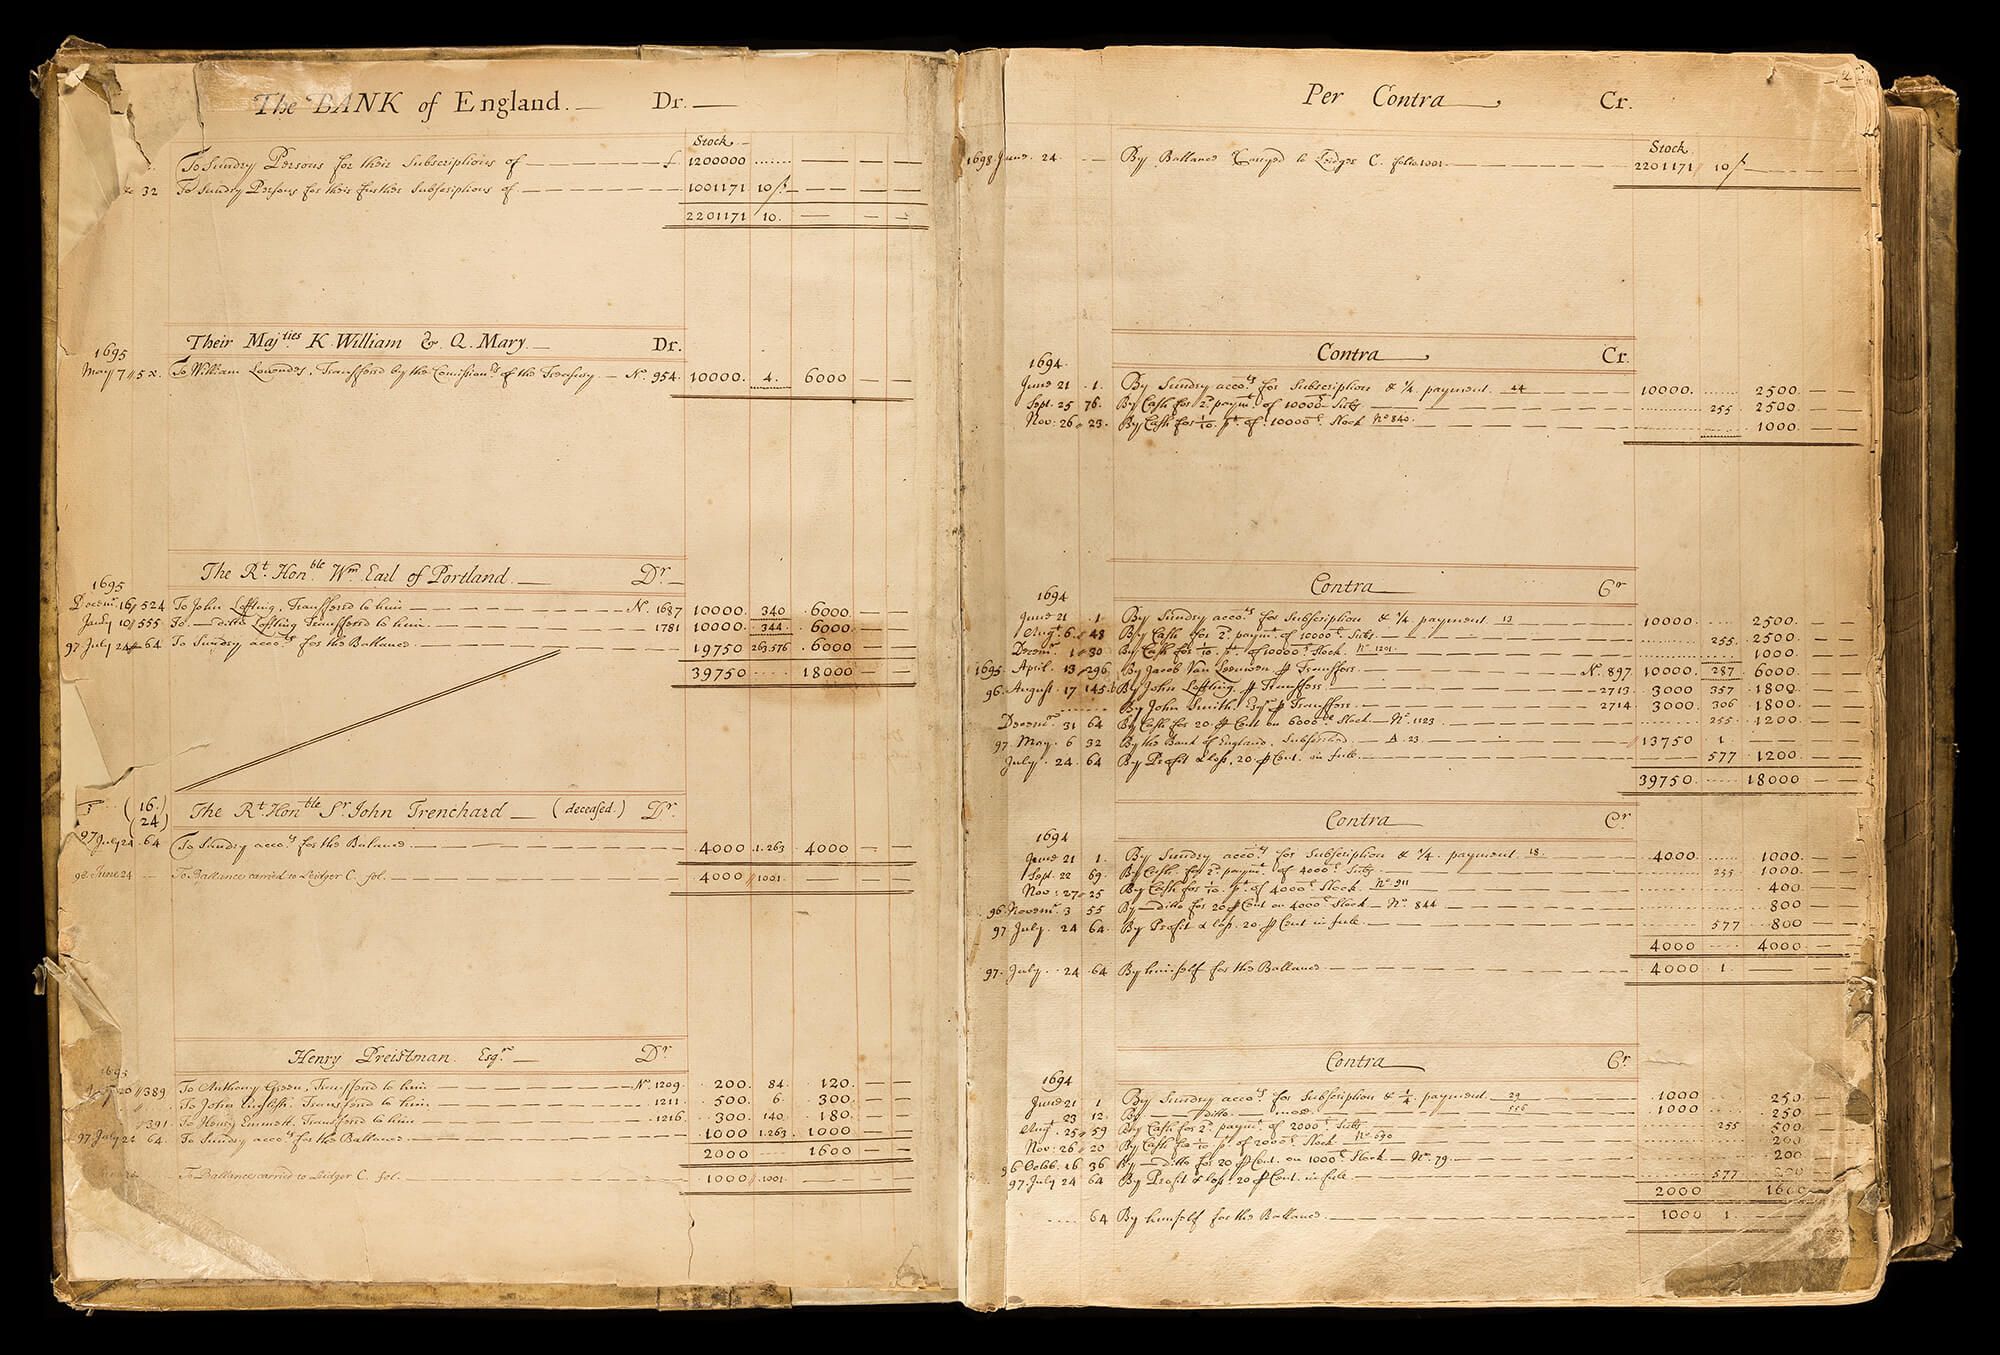 The BANK of England. Dr.
Stock
To Sundry Persons for their Subscriptions of £ 1200000
32 To Sundry Persons for their further Subscriptions of 1001171 10
2201171 10.
Their Maj.ties K. William & Q. Mary. Dr.
1695
May 7 To William Lowndes, Transferred by the Comission.rs of the Treasury N.o 954. 10000. 4. 6000
The R.t Hon.ble W.m Earl of Portland. Dr.
1695
Decem.r 16 524 To John Loftting, Transferred to him N.o 1687 10000. 340 6000
10 555 To ditto Loftting Transferred to him 1781 10000. 344. 6000
97 July 24 64 To Sundry acco.ts for the Ballance 19750 263.576 6000
39750 18000
(16.)
(24)
The R.t Hon.ble S.r John Trenchard (deceased.) Dr.
97 July 24 64 To Sundry acco.ts for the Balance 4000 1.263 4000
98. June 24 To Ballance carried to Leidger C. fol. 4000 1001.
Henry Preistman. Esq.r Dr.
1695
20 389 To Anthony Green, Transferred to him N.o 1209. 200. 84. 120.
To John English. Transferred to him 1211 500. 6 300
391 To Henry Emmett. Transferred to him 1216 300. 140 180.
97 July 24 64. To Sundry acco.ts for the Ballance 1000 1.263 1000
2000 1600
To Ballance carried to Leidger C. fol. 1000 1001
Per Contra Cr.
2
Stock
1698. June. 24. By Ballance Carryed to Leidger C. folio 1001 2201171 10
Contra Cr.
1694.
June 21 1. By Sundry acco.ts for Subscription & 1/4 payment. 44 10000. 2500.
Sept. 25 76. By Cash for 2.d paym.t of 10000 Subs. 255 2500
Nov: 26 23. By Cash for 1/10. p.t of 10000 Stock N.o 840. 1000.
Contra Cr
1694
June 21 1. By Sundry acco.ts for Subscription & 1/4 payment 13 10000. 2500
Aug.t 6 48 By Cash for 2.d paym.t of 10000 Subs. 255 2500
Decem.r 1 30 By Cash for 1/10. p.t of 10000 Stock. N.o 1201 1000
1695 April 13 296 By Jacob Van Leeuwen p Transfer N.o 897 10000. 287 6000
96. August 17 145 By John Loftting. p Transfer 2713 3000 357 1800
By John Smith. Esq.r p Transfer. 2714 3000 306 1800
Decem.r 31 64 By Cash for 20. p Cent on 6000 Stock N.o 1123 255 1200
97. May. 6 32 By the Bank of England. Subscribed 23 13750 1
July. 24. 64 By Profit & loss. 20. p Cent. in full. 577 1200
39750 18000
Contra Cr
1694
June 21 1. By Sundry acco.ts for Subscription & 1/4. payment 18. 4000. 1000.
Sept. 22 69. By Cash for 2.d paym.t of 4000 Subs. 255 1000
Nov: 27 25 By Cash for 1/10. p.t of 4000 Stock N.o 911 400
96. Novem.r 3 55 By ditto for 20 p Cent on 4000 Stock N.o 844 800
97. July. 24 64. By Profit & loss. 20 p Cent in full. 577 800
4000 4000
97. July 24 64 By himself for the Ballance 4000 1
Contra Cr
1694
June 21 1 By Sundry acco.ts for Subscription & 1/4 payment 29 1000 250
23 12. By ditto more 1000 250
Aug.t 25 59 By Cash for 2.d paym.t of 2000 Subs. 255 500
Nov: 26 20 By Cash for 1/10 p.t of 2000 Stock. 200
96 Octob. 16 36 By ditto for 20 p Cent. on 1000 Stock N.o 79. 200
97. July 24 64 By Profit & loss. 20 p Cent. in full 577 200
2000 1600
64 By himself for the Ballance 1000 1